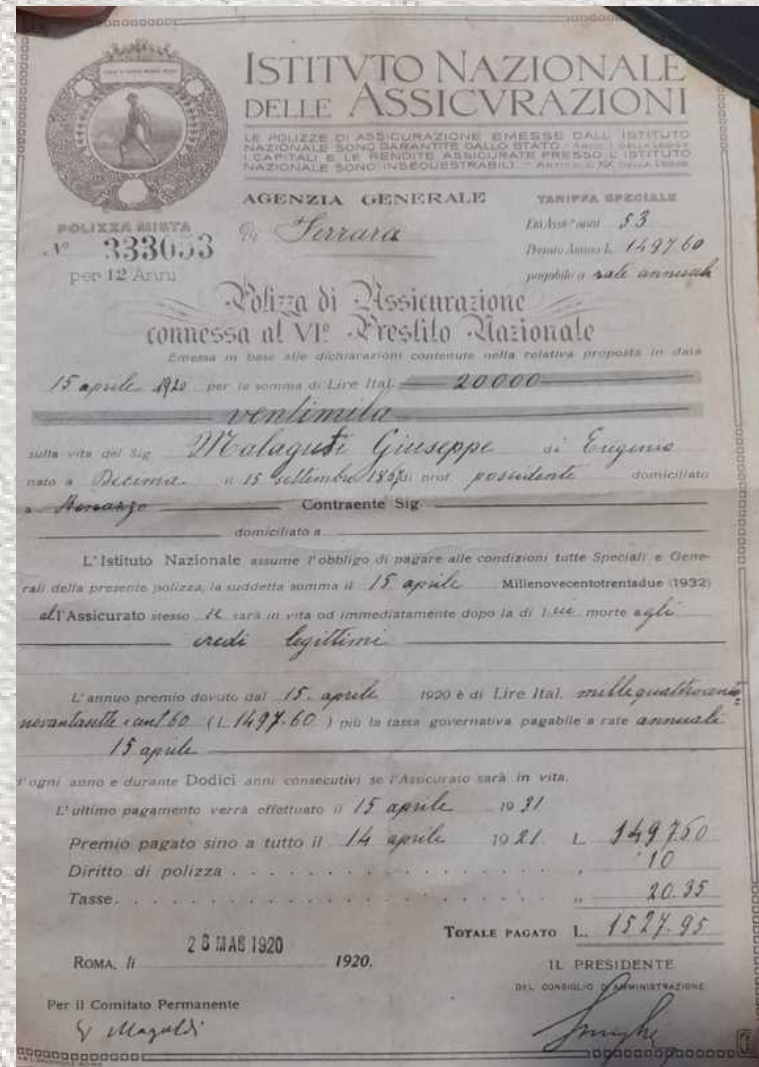 ISTITVTO NAZIONALE
DELLE ASSICVRAZIONI
LE POLIZZE DI ASSICURAZIONE EMESSE DALL' ISTITUTO
NAZIONALE SONO GARANTITE DALLO STATO - DELLA LEGGE
I CAPITALI E LE RENDITE ASSICURATE PRESSO L' ISTITUTO
NAZIONALE SONO INSEQUESTRABILI - DELLA LEGGE
AGENZIA GENERALE
di Ferrara
TARIFFA SPECIALE
Età Assic.ta anni 53
Premio Annuo L. 1497.60
pagabile a rate annuali
POLIZZA MISTA
N° 333053
per 12 Anni
Polizza di Assicurazione
connessa al VI° Prestito Nazionale
Emessa in base alle dichiarazioni contenute nella relativa proposta in data
15 aprile 1920 per la somma di Lire Ital. 20000
ventimila
sulla vita del Sig. Malaguti Giuseppe di Eugenio
nato a Decima il 15 settembre 1867 di prof. possidente domiciliato
a Renazzo Contraente Sig.
domiciliato a
L'Istituto Nazionale assume l'obbligo di pagare alle condizioni tutte Speciali e Gene-
rali della presente polizza, la suddetta somma il 15 aprile Millenovecentotrentadue (1932)
all'Assicurato stesso se sarà in vita od immediatamente dopo la di lui morte agli
eredi legittimi
L'annuo premio dovuto dal 15 aprile 1920 è di Lire Ital. millequattrocento
novantasette e cent. 60 (L. 1497.60) più la tassa governativa pagabile a rate annuali
15 aprile
d'ogni anno e durante Dodici anni consecutivi se l'Assicurato sarà in vita.
L'ultimo pagamento verrà effettuato il 15 aprile 1931
Premio pagato sino a tutto il 14 aprile 1921 L. 149760
Diritto di polizza . . . „ 10
Tasse . . . „ 20.35
TOTALE PAGATO L. 1527.95
ROMA, lì 28 MAG 1920 1920.
IL PRESIDENTE
DEL CONSIGLIO D'AMMINISTRAZIONE
Per il Comitato Permanente
G Magaldi